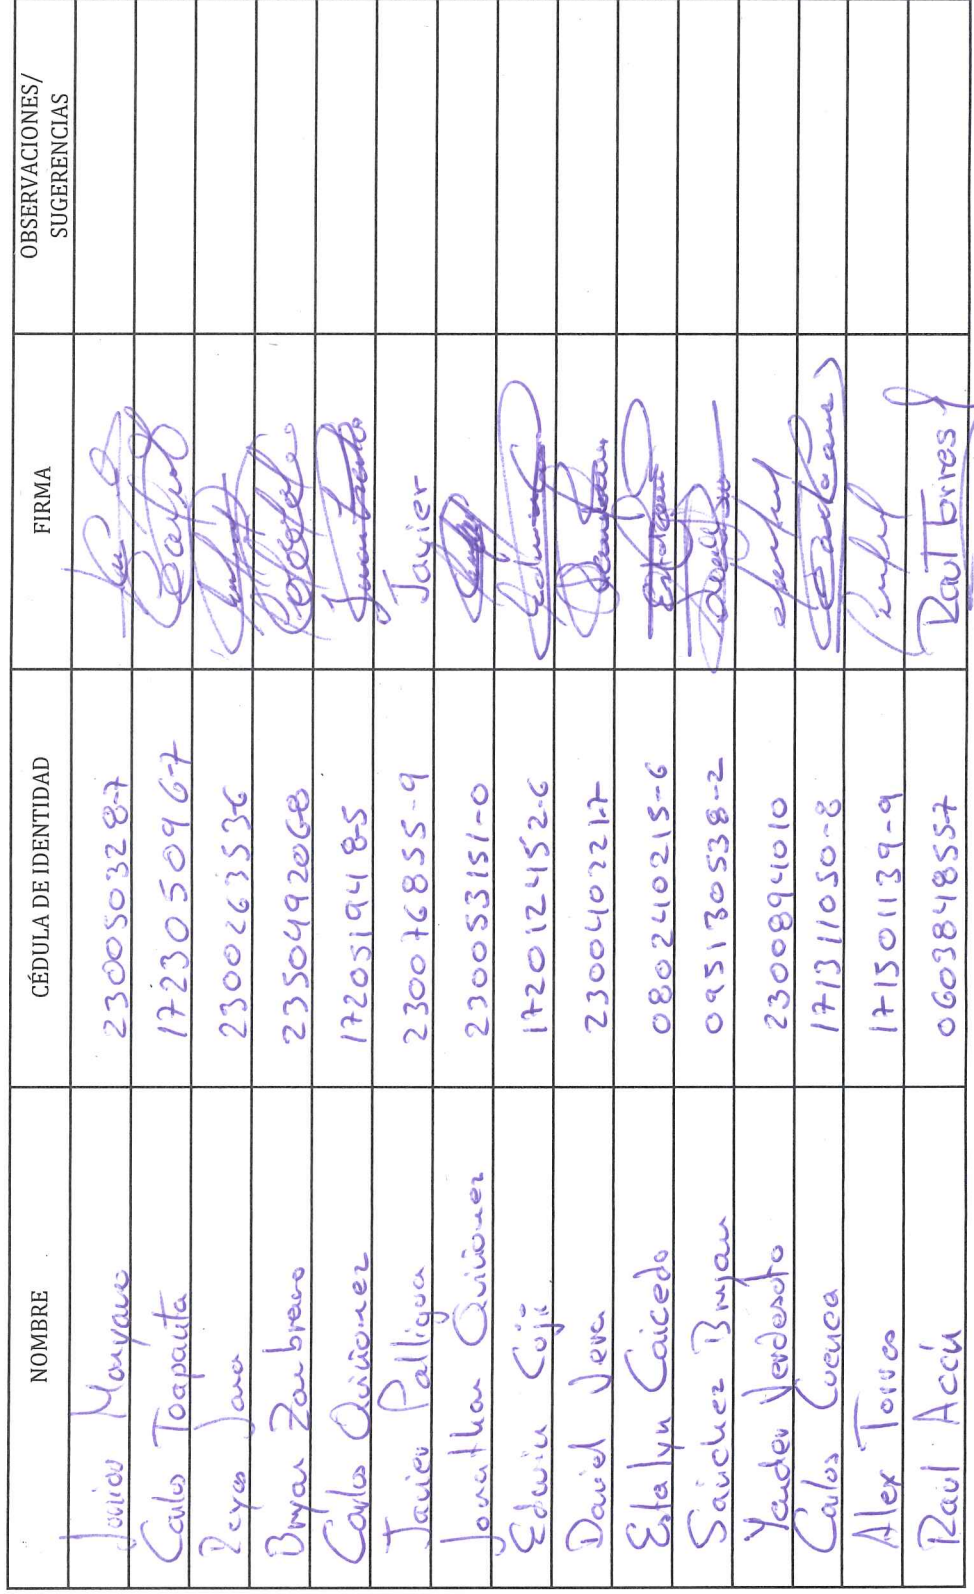 NOMBRE CÉDULA DE IDENTIDAD FIRMA OBSERVACIONES/
SUGERENCIAS
Moyano 230050328-7
Carlos Toapanta 172305096-7
Reyes Jara 230026353-6
Bryan Zambrano 235049206-8
Carlos Quiñonez 172051948-5
Javier Palligua 230076855-9 Javier
Jonathan Quiñonez 230053151-0
Edwin Cují 172012452-6
David Vera 230040221-7
Estalyn Caicedo 080240215-6
Sánchez Bryan 095130538-2
Yander Verdesoto 2300894010
Carlos Cuenca 171311050-8
Alex Torres 171501139-9
Raul Acán 060384855-7 Raul Torres